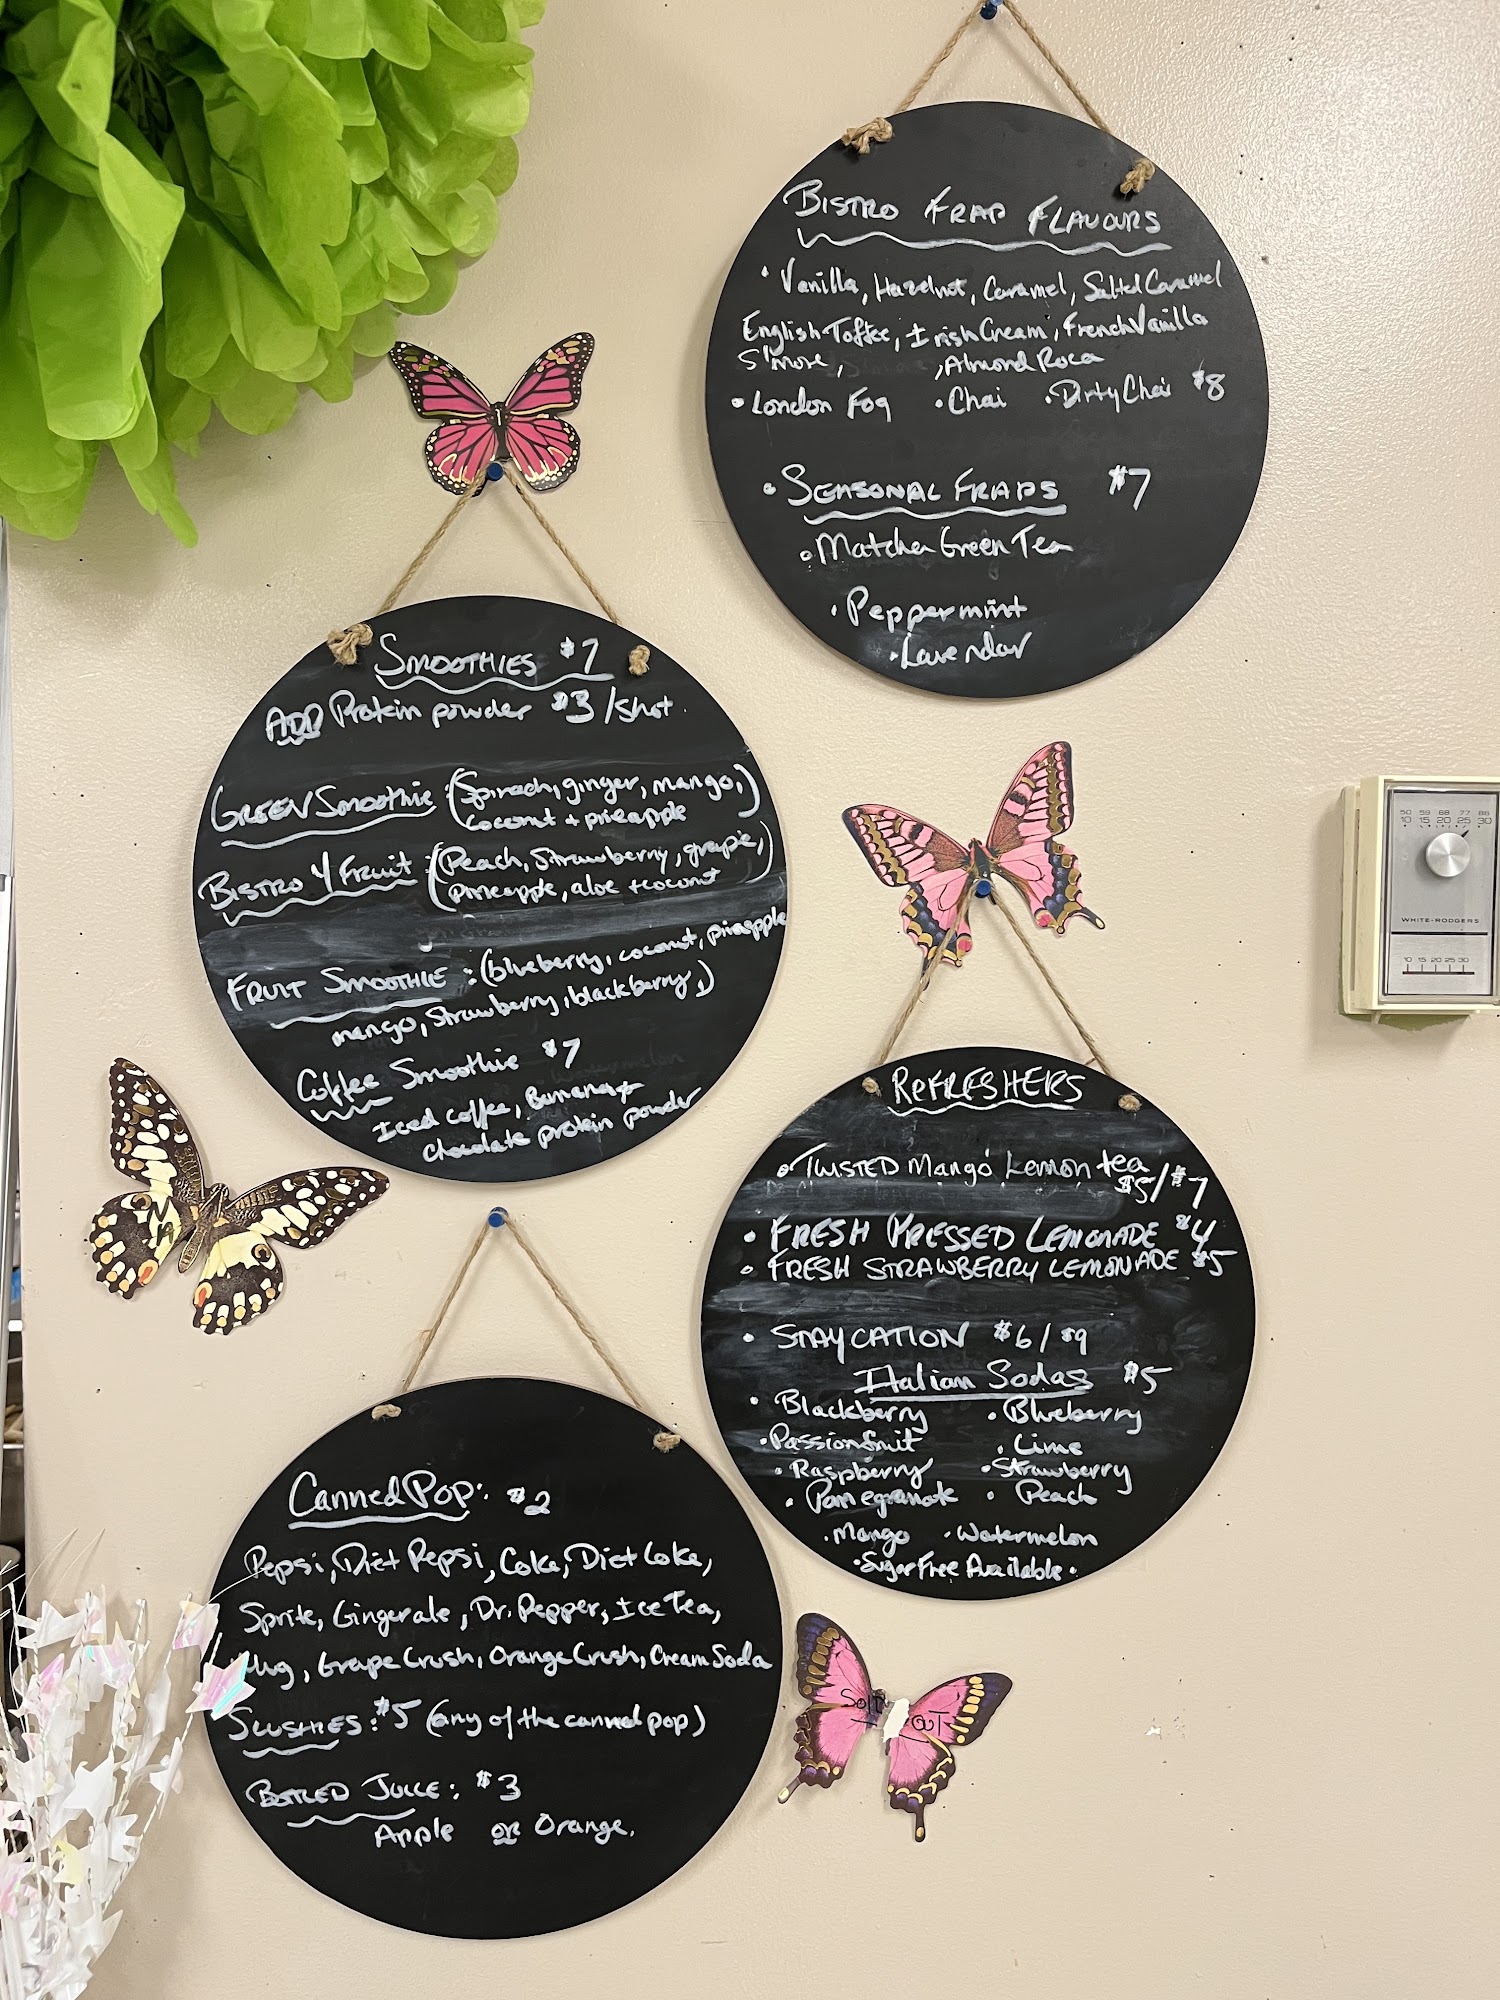 BISTRO FRAP FLAVOURS
• Vanilla, Hazelnut, Caramel, Salted Caramel
English Toffee, Irish Cream, French Vanilla
S'more, , Almond Roca
• London Fog • Chai • Dirty Chai $8
• SEASONAL FRAPS $7
• Matcha Green Tea
• Peppermint
• Lavendar
SMOOTHIES $7
ADD Protein powder $3/shot.
GREEN SMOOTHIE: (Spinach, ginger, mango,
coconut + pineapple)
BISTRO 4 FRUIT: (Peach, Strawberry, grape,
pineapple, aloe + coconut)
FRUIT SMOOTHIE: (blueberry, coconut, pineapple
mango, strawberry, blackberry,)
Coffee Smoothie $7
Iced coffee, Banana +
chocolate protein powder
REFRESHERS
• TWISTED Mango Lemon tea
$5/$7
• FRESH PRESSED LEMONADE $4
• FRESH STRAWBERRY LEMONADE $5
• STAYCATION $6/$9
Italian Sodas $5
• Blackberry • Blueberry
• Passionfruit • Lime
• Raspberry • Strawberry
• Pomegranate • Peach
• Mango • Watermelon
• Sugar Free Available •
Canned Pop: $2
Pepsi, Diet Pepsi, Coke, Diet Coke,
Sprite, Gingerale, Dr. Pepper, Ice Tea,
Mug, Grape Crush, Orange Crush, Cream Soda
SLUSHIES: $5 (any of the canned pop)
BOTTLED JUICE: $3
Apple or Orange.
50 59 68 77 86
10 15 20 25 30
WHITE-RODGERS
10 15 20 25 30